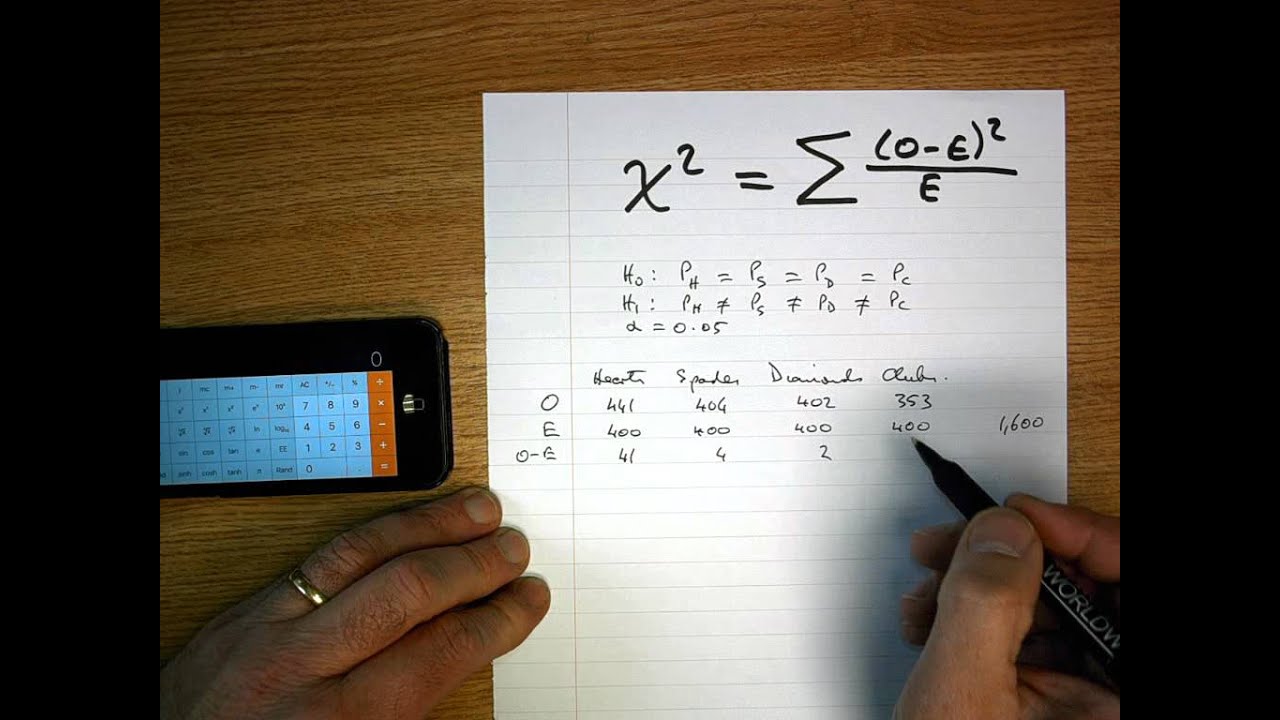 χ² = Σ (O-E)² / E
H₀: P_H = P_S = P_D = P_C
H₁: P_H ≠ P_S ≠ P_D ≠ P_C
α = 0.05
Hearts Spades Diamonds Clubs.
O 441 404 402 353
E 400 400 400 400 1,600
O-E 41 4 2
0
mc m+ m- mr AC +/- % ÷
7 8 9 ×
ln log₁₀ 4 5 6 −
sin cos tan EE 1 2 3 +
sinh cosh tanh π Rand 0 . =
WORLDW